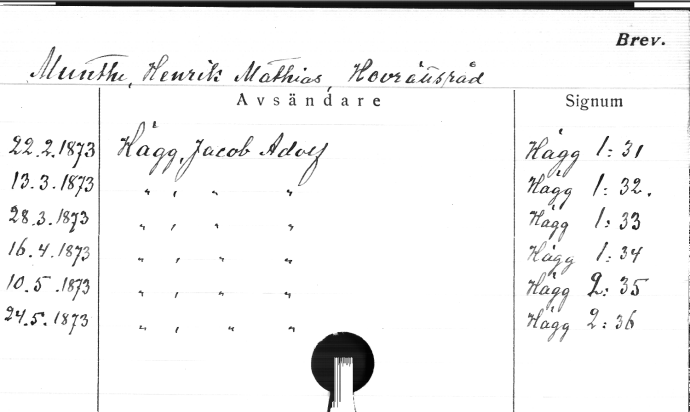 Brev.
Munthe, Henrik Mathias, Hovrättsråd
Avsändare Signum
22.2.1873 Hägg, Jacob Adolf Hägg 1:31
13.3.1873 " , " " Hägg 1:32.
28.3.1873 " , " " Hägg 1:33
16.4.1873 " , " " Hägg 1:34
10.5.1873 " , " " Hägg 2:35
24.5.1873 " , " " Hägg 2:36